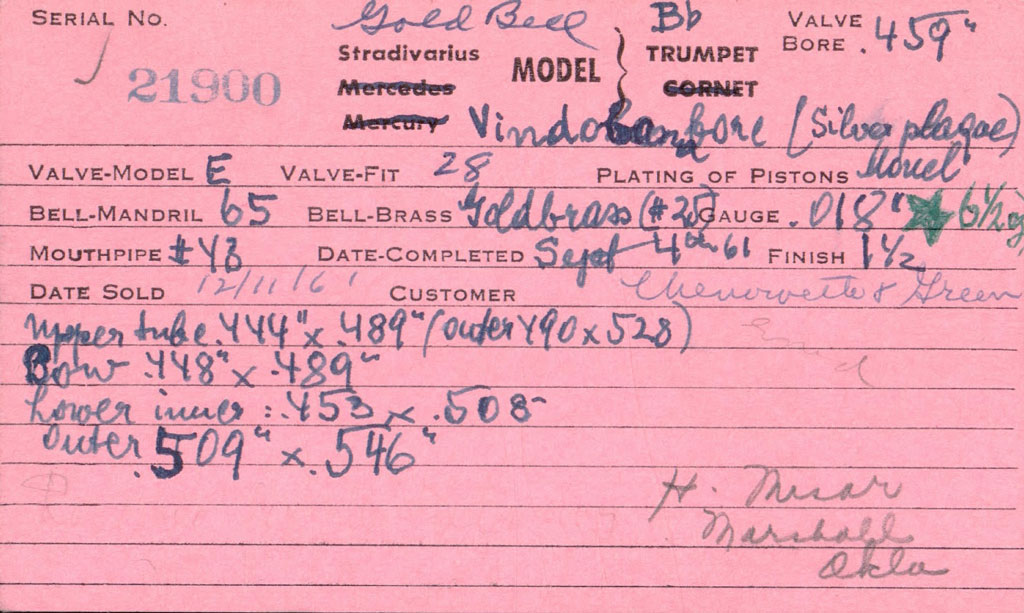 SERIAL NO. 21900
Gold Bell Bb
Stradivarius
Mercedes
Mercury
MODEL
TRUMPET
CORNET
VALVE BORE .459"
Vindobona bore (Silver plaque)
VALVE-MODEL E VALVE-FIT 28 PLATING OF PISTONS Monel
BELL-MANDRIL 65 BELL-BRASS Goldbrass (#25) GAUGE .018" 6½
MOUTHPIPE #43 DATE-COMPLETED Sept 4th 61 FINISH 1½
DATE SOLD 12/11/61 CUSTOMER Chenowette & Green
Enid
Upper tube .444" x .489" (outer 490 x 528)
Bow .448" x .489"
Lower inner: .453 x .508
Outer .509" x .546"
H. Mesar
Marshall
Okla